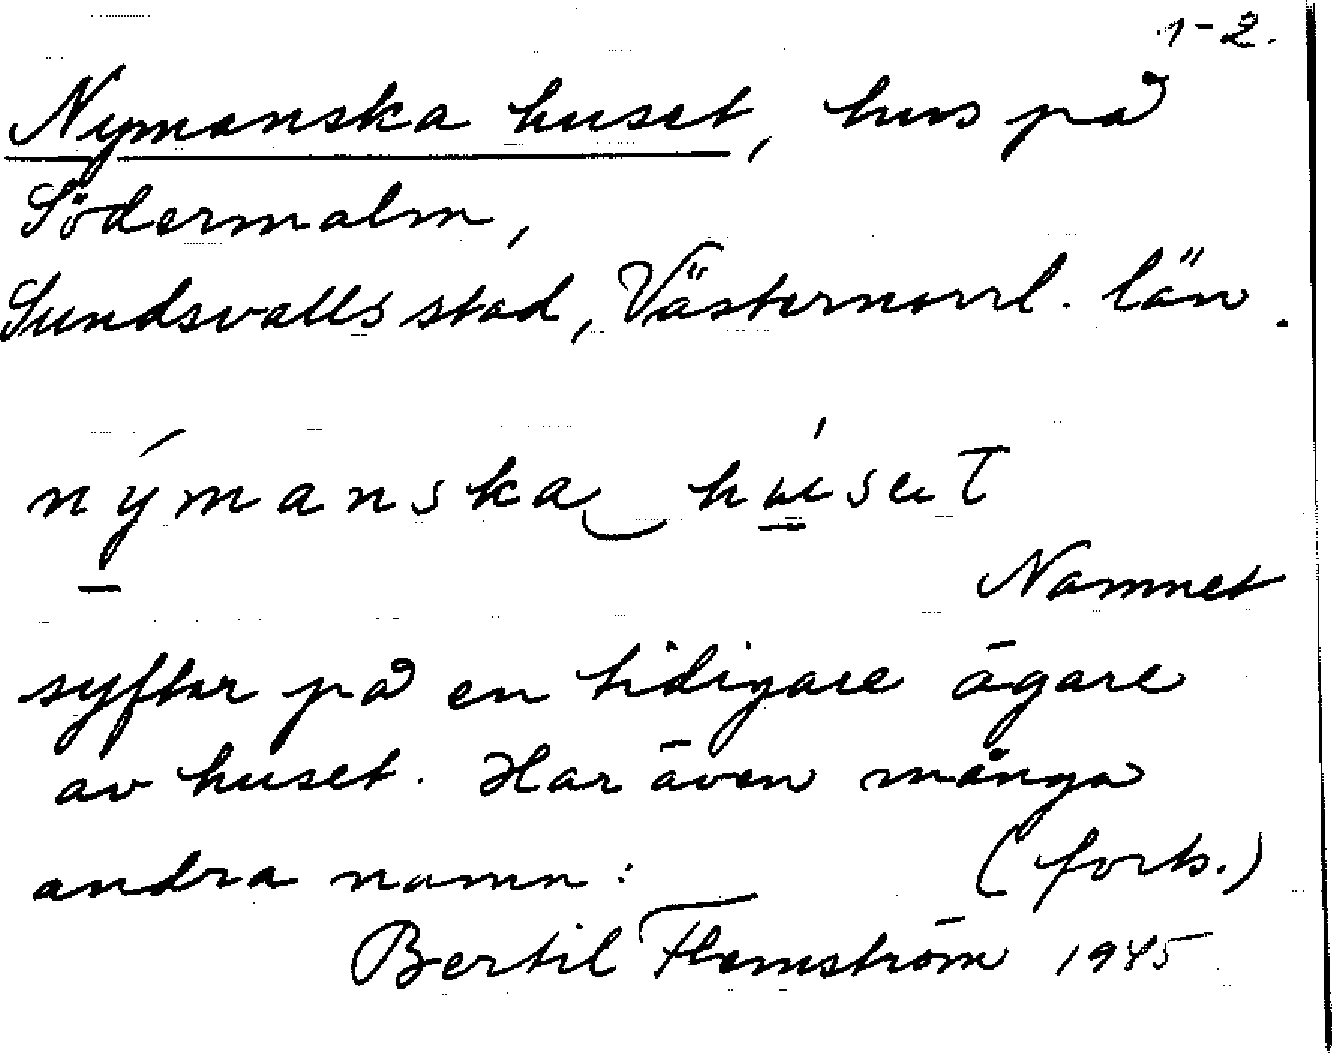 1-2.
Nymanska huset, hus på
Södermalm,
Sundsvalls stad, Västernorrl. län.
nýmanska‿ húset
Namnet
syftar på en tidigare ägare
av huset. Har även många
andra namn: (forts.)
Bertil Flemström 1945